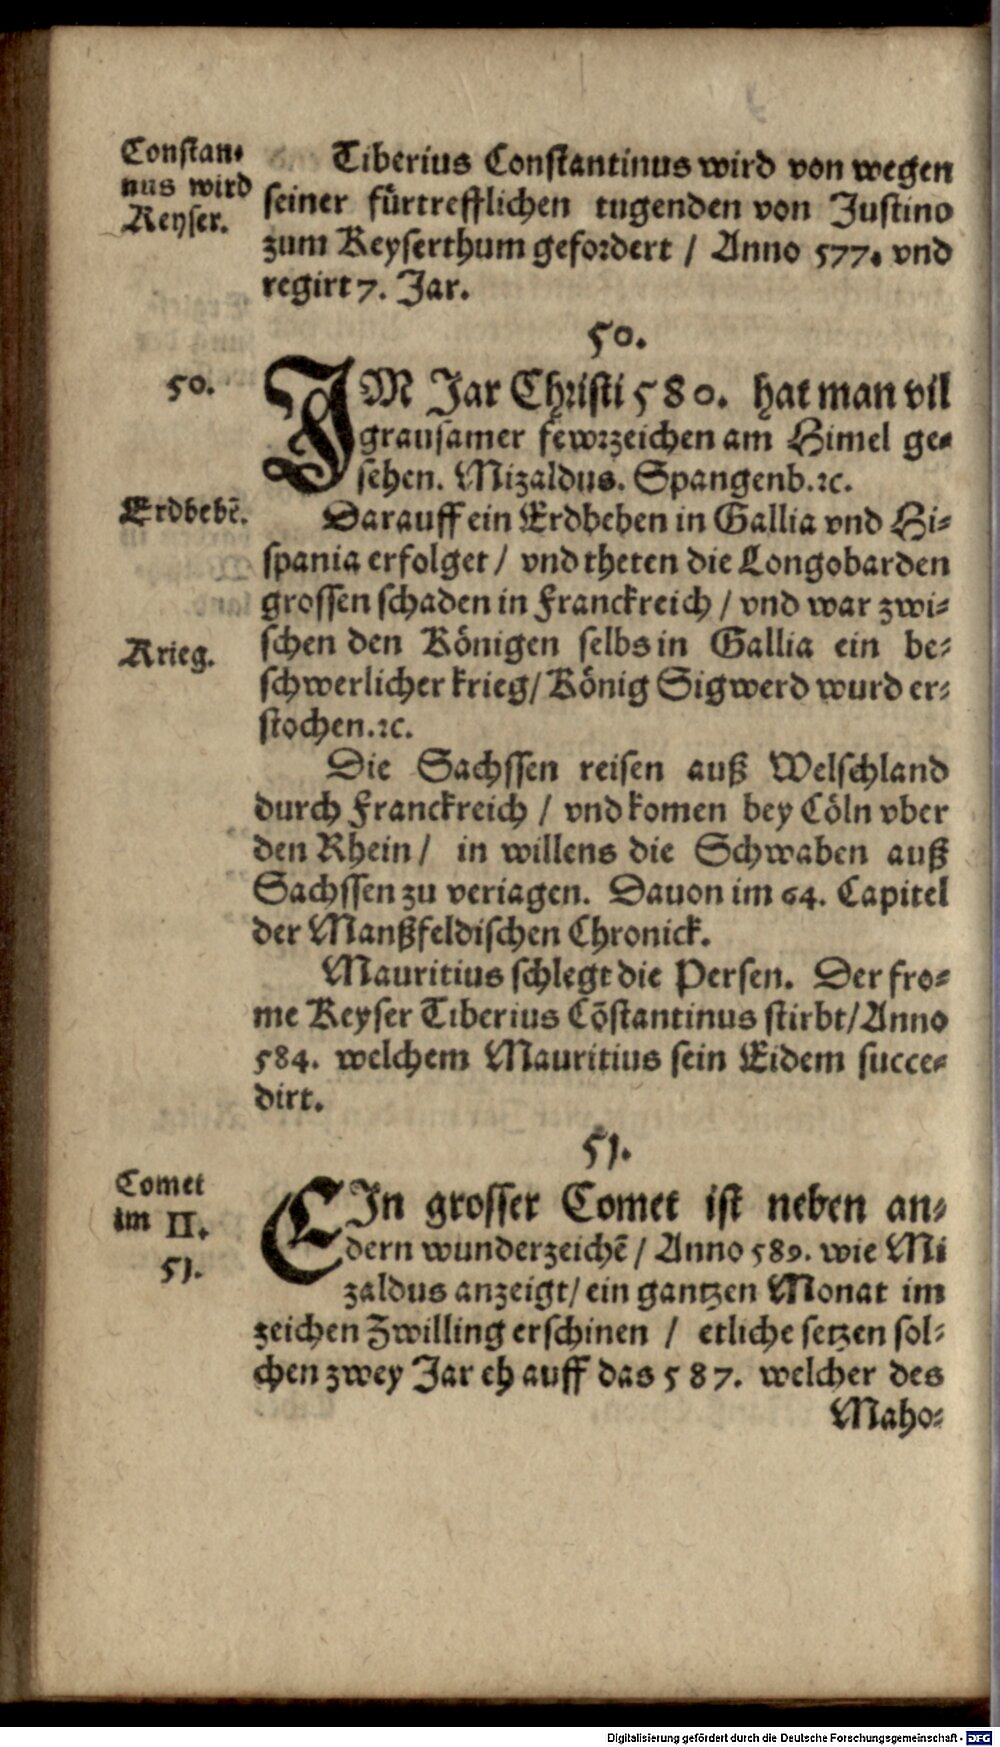 Constan-
nus wird
Keyser.
Tiberius Constantinus wird von wegen
seiner fürtrefflichen tugenden von Justino
zum Keyserthum gefordert / Anno 577. vnd
regirt 7. Jar.
50.
50.
IM Jar Christi 580. hat man vil
grausamer fewrzeichen am Himel ge-
sehen. Mizaldus. Spangenb. ꝛc.
Erdbebē.
Darauff ein Erdbeben in Gallia vnd Hi-
spania erfolget / vnd theten die Longobarden
grossen schaden in Franckreich / vnd war zwi-
Krieg.
schen den Königen selbs in Gallia ein be-
schwerlicher krieg / König Sigwerd wurd er-
stochen. ꝛc.
Die Sachssen reisen auß Welschland
durch Franckreich / vnd komen bey Cöln vber
den Rhein / in willens die Schwaben auß
Sachssen zu veriagen. Dauon im 64. Capitel
der Manßfeldischen Chronick.
Mauritius schlegt die Persen. Der fro-
me Keyser Tiberius Cōstantinus stirbt / Anno
584. welchem Mauritius sein Eidem succe-
dirt.
51.
Comet
im II.
51.
EIn grosser Comet ist neben an-
dern wunderzeichē / Anno 589. wie Mi
zaldus anzeigt / ein gantzen Monat im
zeichen Zwilling erschinen / etliche setzen sol-
chen zwey Jar eh auff das 587. welcher des
Maho-
Digitalisierung gefördert durch die Deutsche Forschungsgemeinschaft - DFG